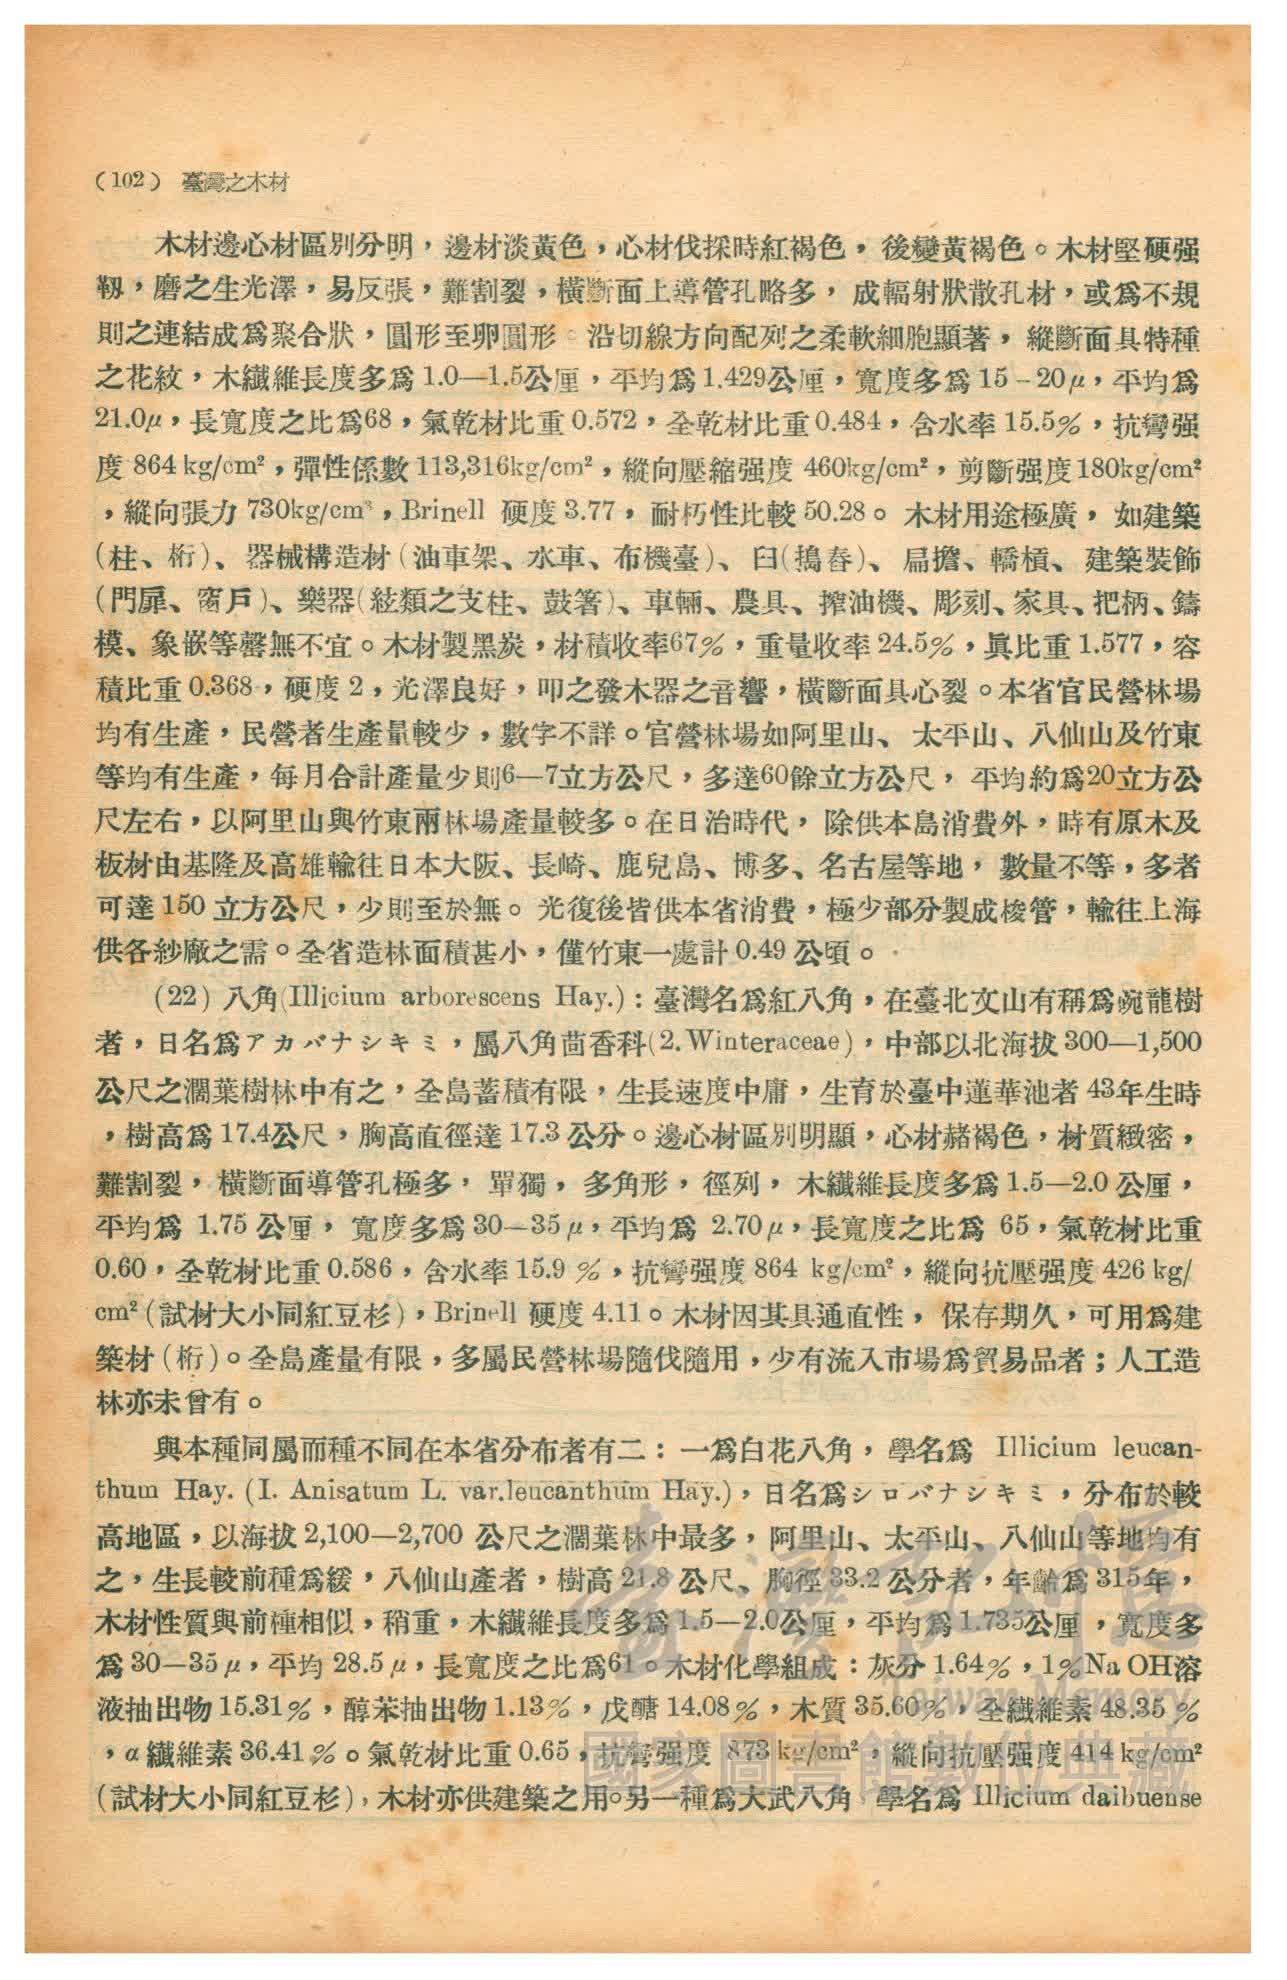 (102) 臺灣之木材
木材邊心材區別分明，邊材淡黃色，心材伐採時紅褐色，後變黃褐色。木材堅硬强
靱，磨之生光澤，易反張，難割裂，橫斷面上導管孔略多，成輻射狀散孔材，或爲不規
則之連結成爲聚合狀，圓形至卵圓形。沿切線方向配列之柔軟細胞顯著，縱斷面具特種
之花紋，木纖維長度多爲1.0—1.5公厘，平均爲1.429公厘，寬度多爲15-20μ，平均爲
21.0μ，長寬度之比爲68，氣乾材比重0.572，全乾材比重0.484，含水率15.5%，抗彎强
度864kg/cm²，彈性係數113,316kg/cm²，縱向壓縮强度460kg/cm²，剪斷强度180kg/cm²
，縱向張力730kg/cm³，Brinell 硬度3.77，耐朽性比較50.28。木材用途極廣，如建築
(柱、桁)、器械構造材(油車架、水車、布機臺)、臼(搗舂)、扁擔、轎槓、建築裝飾
(門扉、窗戶)、樂器(絃類之支柱、鼓箸)、車輛、農具、搾油機、彫刻、家具、把柄、鑄
模、象嵌等罄無不宜。木材製黑炭，材積收率67%，重量收率24.5%，眞比重1.577，容
積比重0.368，硬度2，光澤良好，叩之發木器之音響，橫斷面具心裂。本省官民營林場
均有生產，民營者生產量較少，數字不詳。官營林場如阿里山、太平山、八仙山及竹東
等均有生產，每月合計產量少則6—7立方公尺，多達60餘立方公尺，平均約爲20立方公
尺左右，以阿里山與竹東兩林場產量較多。在日治時代，除供本島消費外，時有原木及
板材由基隆及高雄輸往日本大阪、長崎、鹿兒島、博多、名古屋等地，數量不等，多者
可達150立方公尺，少則至於無。光復後皆供本省消費，極少部分製成梭管，輸往上海
供各紗廠之需。全省造林面積甚小，僅竹東一處計0.49公頃。
(22) 八角(Illicium arborescens Hay.)：臺灣名爲紅八角，在臺北文山有稱爲豌龍樹
者，日名爲アカバナシキミ，屬八角茴香科(2.Winteraceae)，中部以北海拔300—1,500
公尺之濶葉樹林中有之，全島蓄積有限，生長速度中庸，生育於臺中蓮華池者43年生時
，樹高爲17.4公尺，胸高直徑達17.3公分。邊心材區別明顯，心材赭褐色，材質緻密，
難割裂，橫斷面導管孔極多，單獨，多角形，徑列，木纖維長度多爲1.5—2.0公厘，
平均爲 1.75公厘，寬度多爲30—35μ，平均爲 2.70μ，長寬度之比爲 65，氣乾材比重
0.60，全乾材比重0.586，含水率15.9 %，抗彎强度864 kg/cm²，縱向抗壓强度426 kg/
cm²(試材大小同紅豆杉)，Brinell 硬度4.11。木材因其具通直性，保存期久，可用爲建
築材(桁)。全島產量有限，多屬民營林場隨伐隨用，少有流入市場爲貿易品者；人工造
林亦未曾有。
與本種同屬而種不同在本省分布者有二：一爲白花八角，學名爲 Illicium leucan-
thum Hay. (I. Anisatum L. var.leucanthum Hay.)，日名爲シロバナシキミ，分布於較
高地區，以海拔2,100—2,700公尺之濶葉林中最多，阿里山、太平山、八仙山等地均有
之，生長較前種爲緩，八仙山產者，樹高21.8公尺、胸徑33.2公分者，年齡爲315年，
木材性質與前種相似，稍重，木纖維長度多爲1.5—2.0公厘，平均爲1.735公厘，寬度多
爲30—35μ，平均28.5μ，長寬度之比爲61。木材化學組成：灰分1.64%，1%Na OH溶
液抽出物15.31%，醇苯抽出物1.13%，戊醣14.08%，木質35.60%，全纖維素48.35 %
，α纖維素36.41%。氣乾材比重0.65，抗彎强度 873kg/cm²，縱向抗壓强度414kg/cm²
(試材大小同紅豆杉)，木材亦供建築之用。另一種爲大武八角 學名爲 Illicium daibuense
臺灣記憶
Taiwan Memory
國家圖書館數位典藏